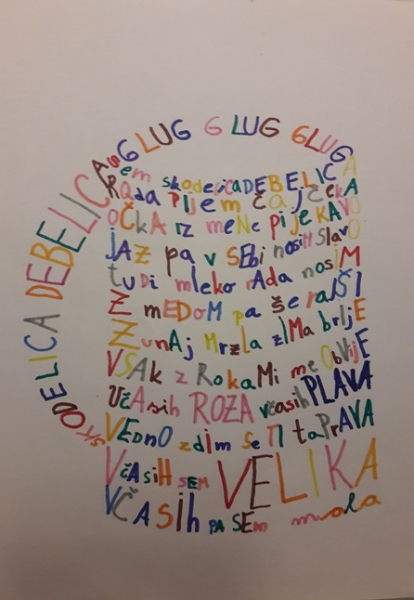 GLUG GLUG GLUG
SKODELICA DEBELICA
Sem skodelicA DEBELICA
RAda PIJEm ČAJčekA
OČkA iz meNe piJe KAVO
JAZ pa v SEbi nosiM SlavO
tuDi mleko rAda nosiM
Z mEDOM pa še rajŠI
ZunAj Mrzla zIMa brIjE
VSAk z RokaMi me ObVIJE
VčAsih ROZA včasih PLAVA
VEDnO zdim se TI taPrAVA
VčAsiH SEM VELIKA
VČASih PA SEm mala